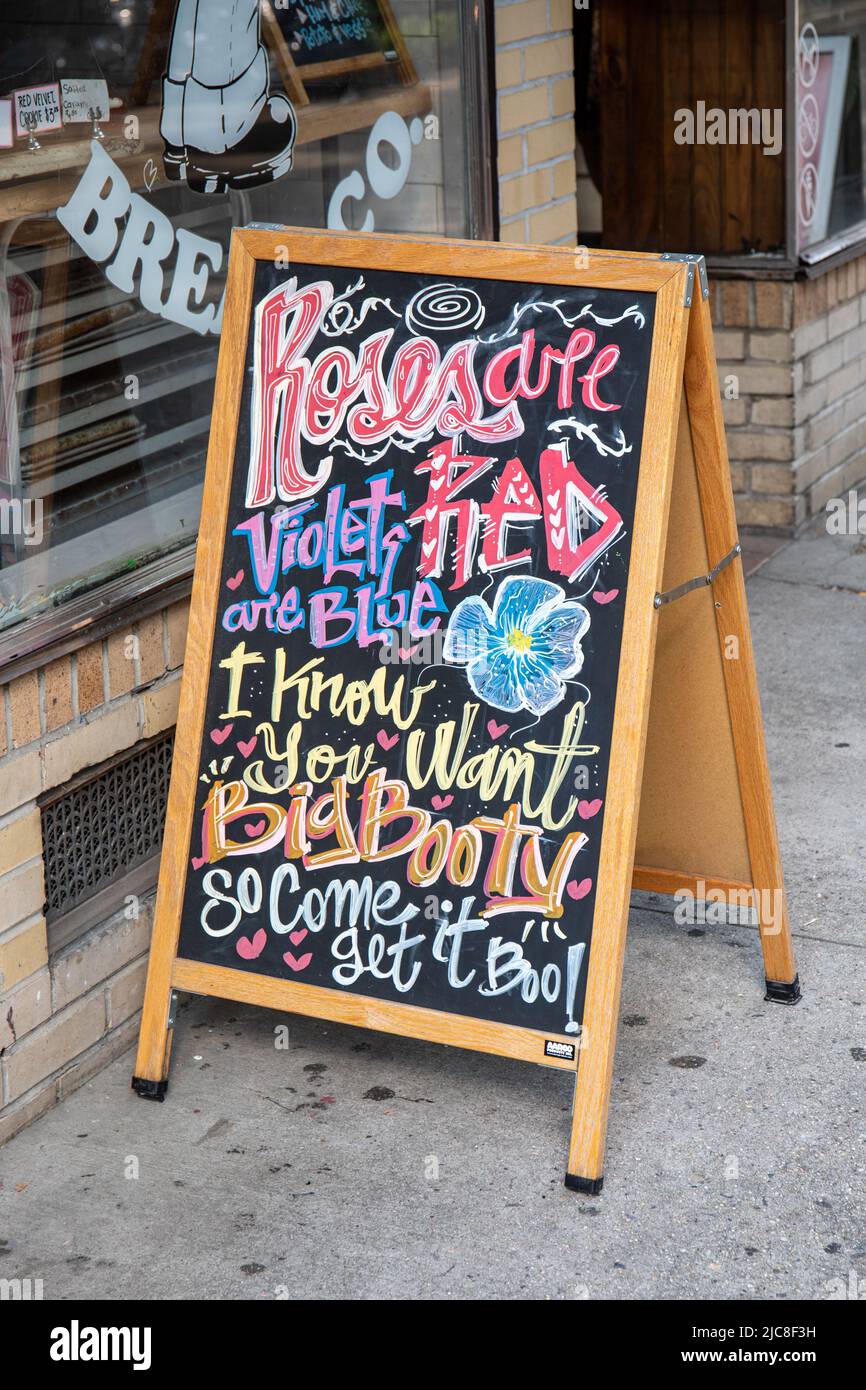 RED VELVET
COOKIE $3
Salted
BREA
CO.
Roses are
RED
Violets
are Blue
I Know
You Want
Big Booty
So Come
get it Boo!
AARCO
alamy
Image ID: 2JC8F3H
www.alamy.com